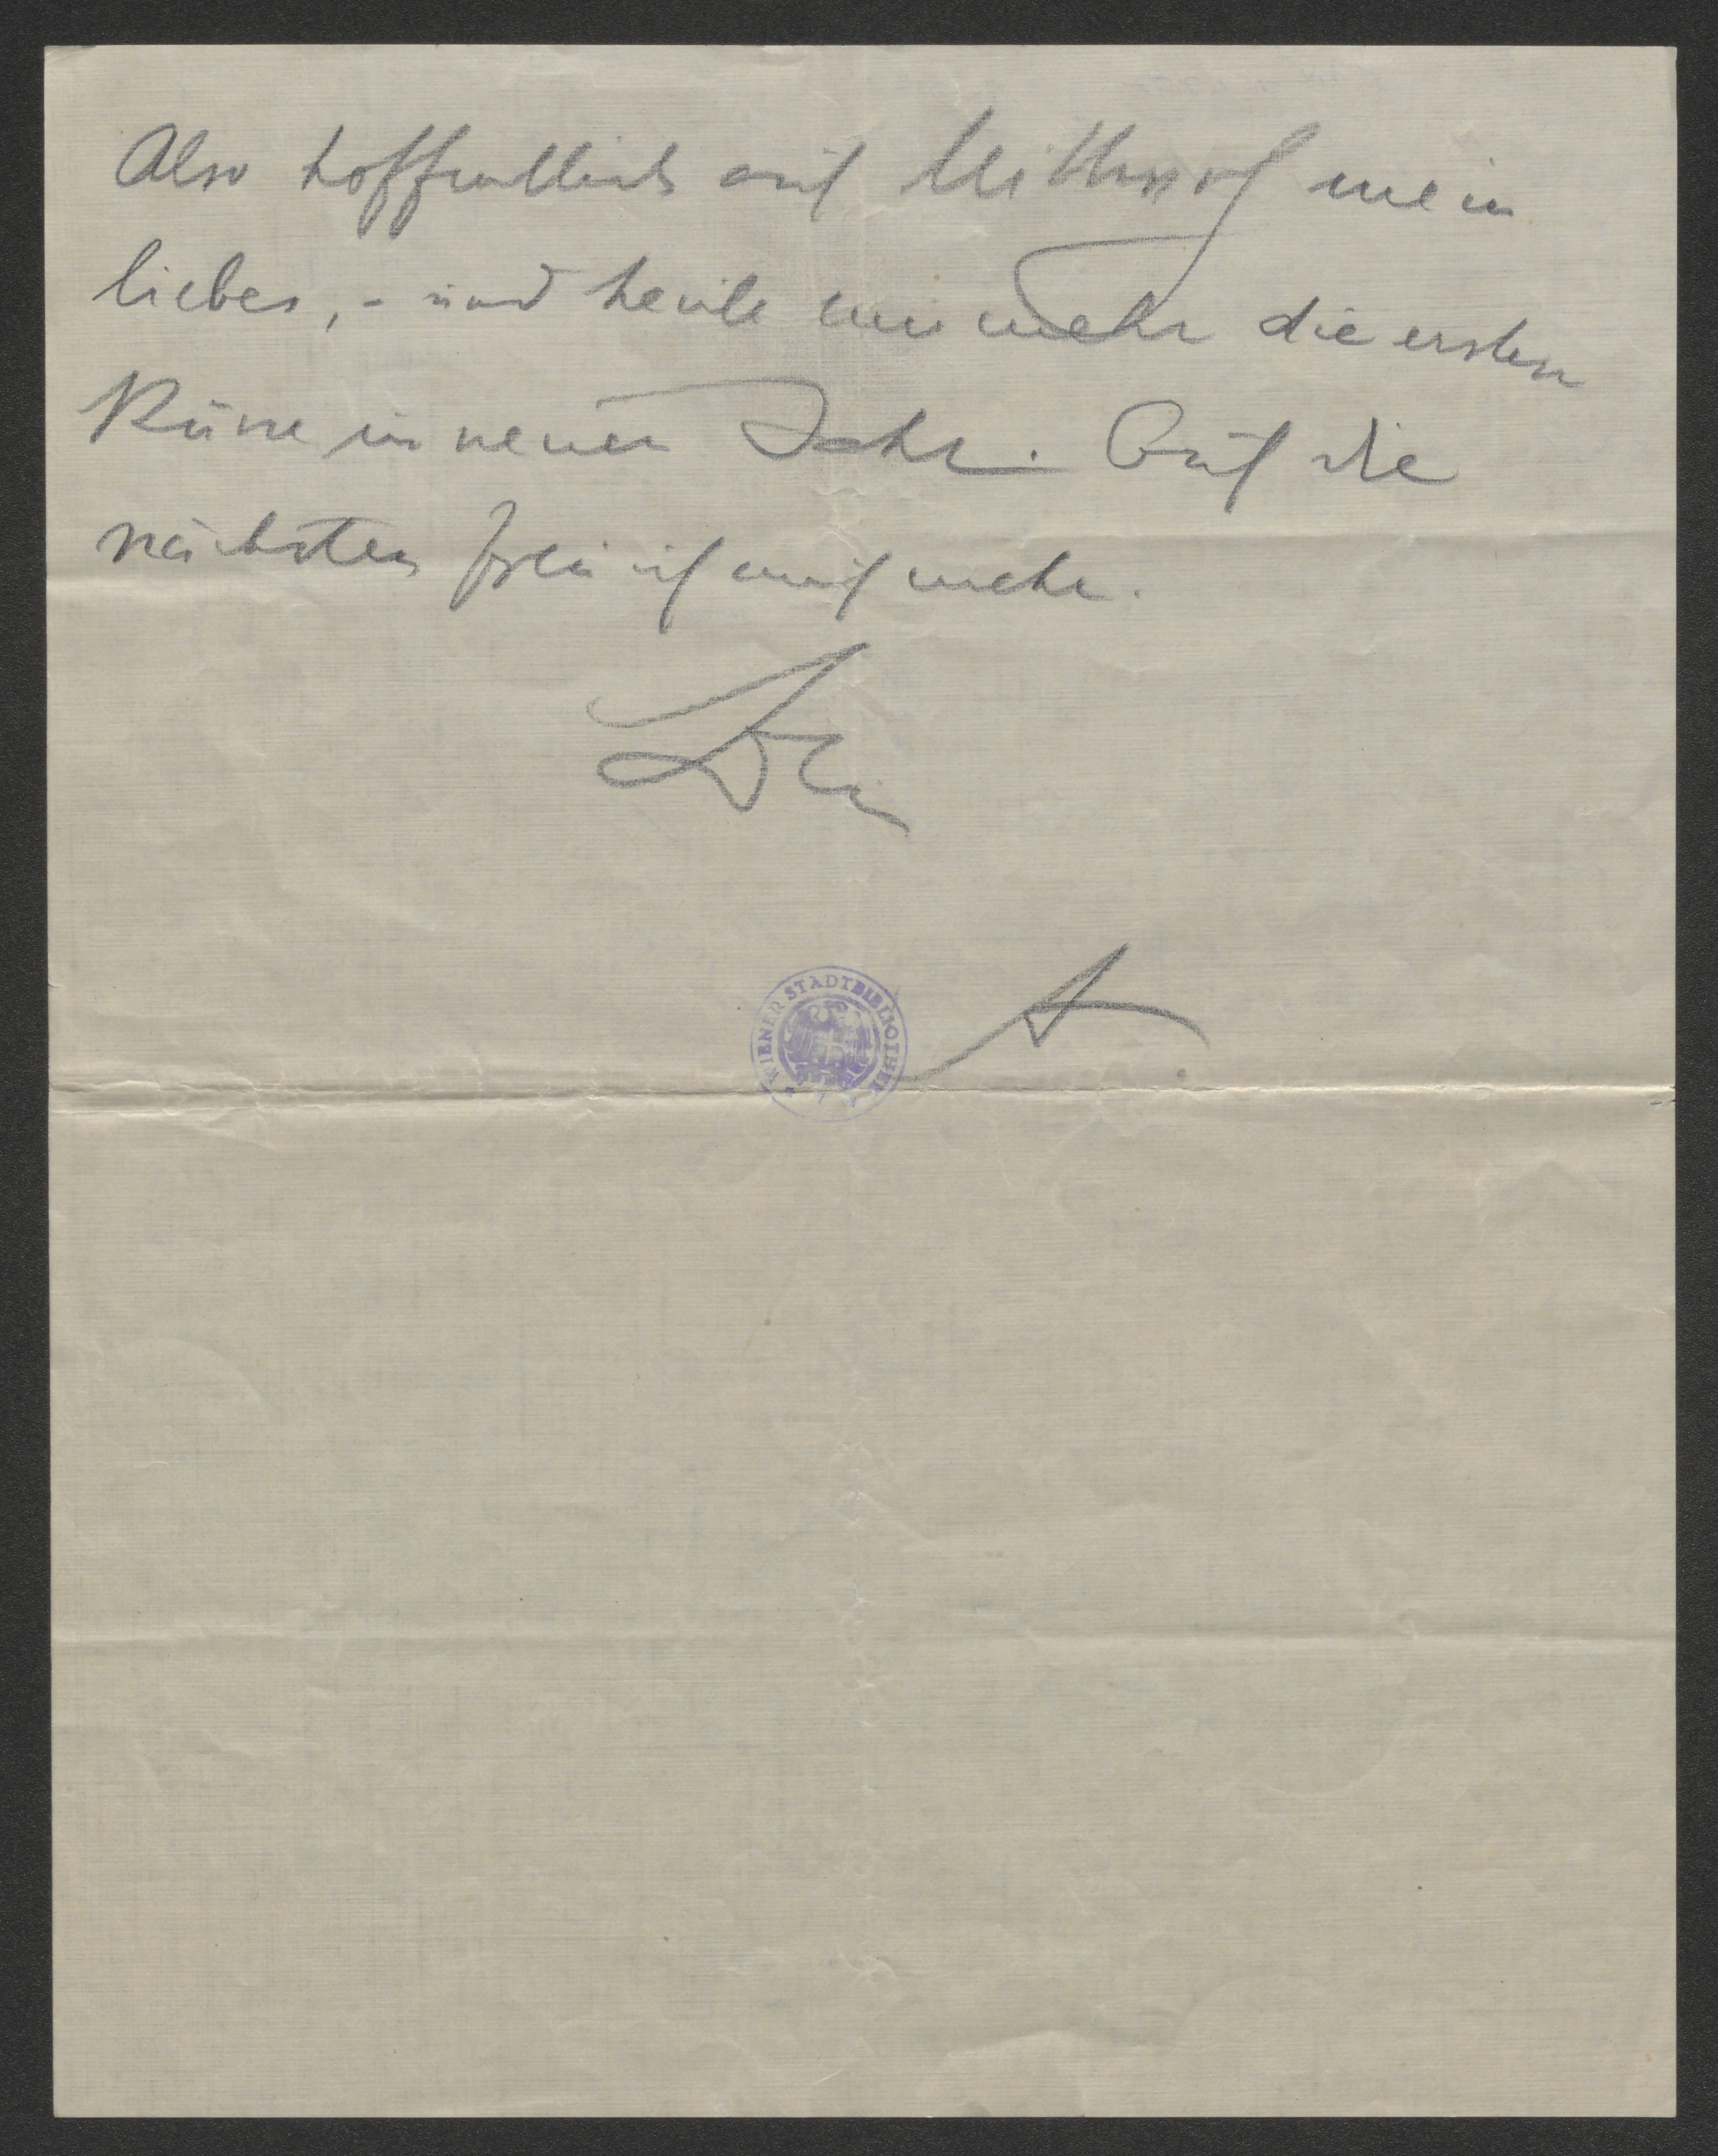 Also hoffentlich auf Mittwoch mein
liebes, - und heute nunmehr die ersten
Küsse im neuen Jahr. Auf die
nächsten freu ich mich mehr.
Dein
A.
WIENER STADTBIBLIOTHEK